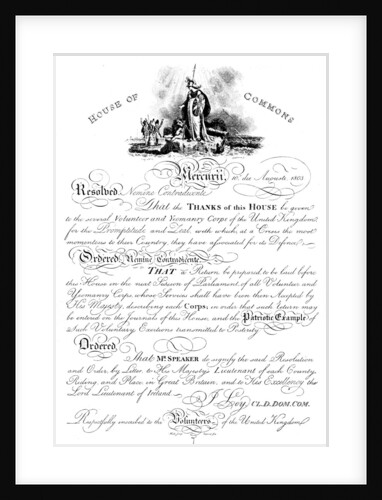 HOUSE OF COMMONS
Mercurii, 10° die Augusti, 1803
Resolved Nemine Contradicente,
That the THANKS of this HOUSE be given
to the several Volunteer and Yeomanry Corps of the United Kingdom,
for the Promptitude and Zeal with which, at a Crisis the most
momentous to their Country, they have associated for its Defence.
Ordered, Nemine Contradicente,
THAT a Return be prepared to be laid before
this House in the next Session of Parliament of all Volunteer and
Yeomanry Corps, whose Services shall have been then Accepted by
His Majesty, describing each Corps; in order that such Return may
be entered in the Journals of this House, and the Patriotic Example of
such Voluntary Exertions transmitted to Posterity.
Ordered,
That Mr. SPEAKER do signify the said Resolution
and Order, by Letter to His Majesty's Lieutenant of each County,
Riding, and Place in Great Britain, and to His Excellency the
Lord Lieutenant of Ireland.
J. Ley CL. D. DOM. COM.
Respectfully inscribed to the Volunteers of the United Kingdom